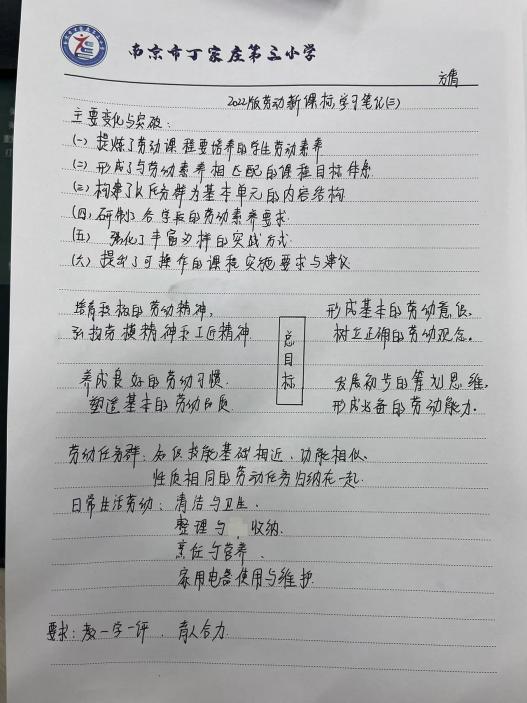 南京市丁家庄第三小学
方倩
2022版劳动新课标学习笔记(三)
主要变化与突破:
(一) 提炼了劳动课程要培养的学生劳动素养
(二) 形成了与劳动素养相匹配的课程目标体系
(三) 构建了以任务群为基本单元的内容结构
(四) 研制了各学段的劳动素养要求
(五) 强化了丰富多样的实践方式
(六) 提出了可操作的课程实施要求与建议
培育积极的劳动精神,
弘扬劳模精神和工匠精神
形成基本的劳动意识,
树立正确的劳动观念。
总目标
养成良好的劳动习惯.
塑造基本的劳动品质
发展初步的筹划思维,
形成必备的劳动能力。
劳动任务群: 知识技能基础相近、功能相似、
性质相同的劳动任务归纳在一起.
日常生活劳动: 清洁与卫生.
整理与 收纳.
烹饪与营养.
家用电器使用与维护
要求: 教一学一评. 育人合力.